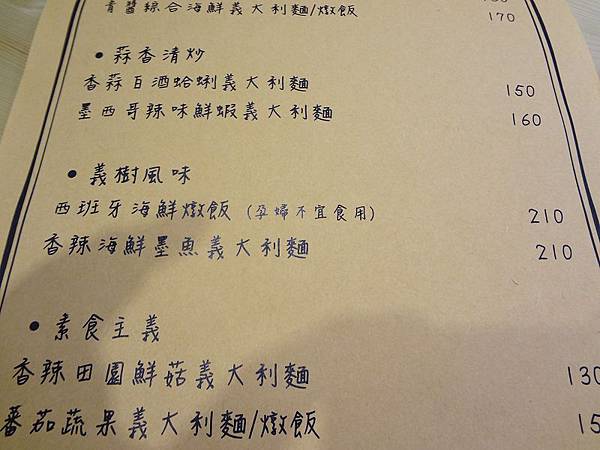 青醬綜合海鮮義大利麵/燉飯 170
• 蒜香清炒
香蒜白酒蛤蜊義大利麵 150
墨西哥辣味鮮蝦義大利麵 160
• 義樹風味
西班牙海鮮燉飯 (孕婦不宜食用) 210
香辣海鮮墨魚義大利麵 210
• 素食主義
香辣田園鮮菇義大利麵 130
蕃茄蔬果義大利麵/燉飯 15